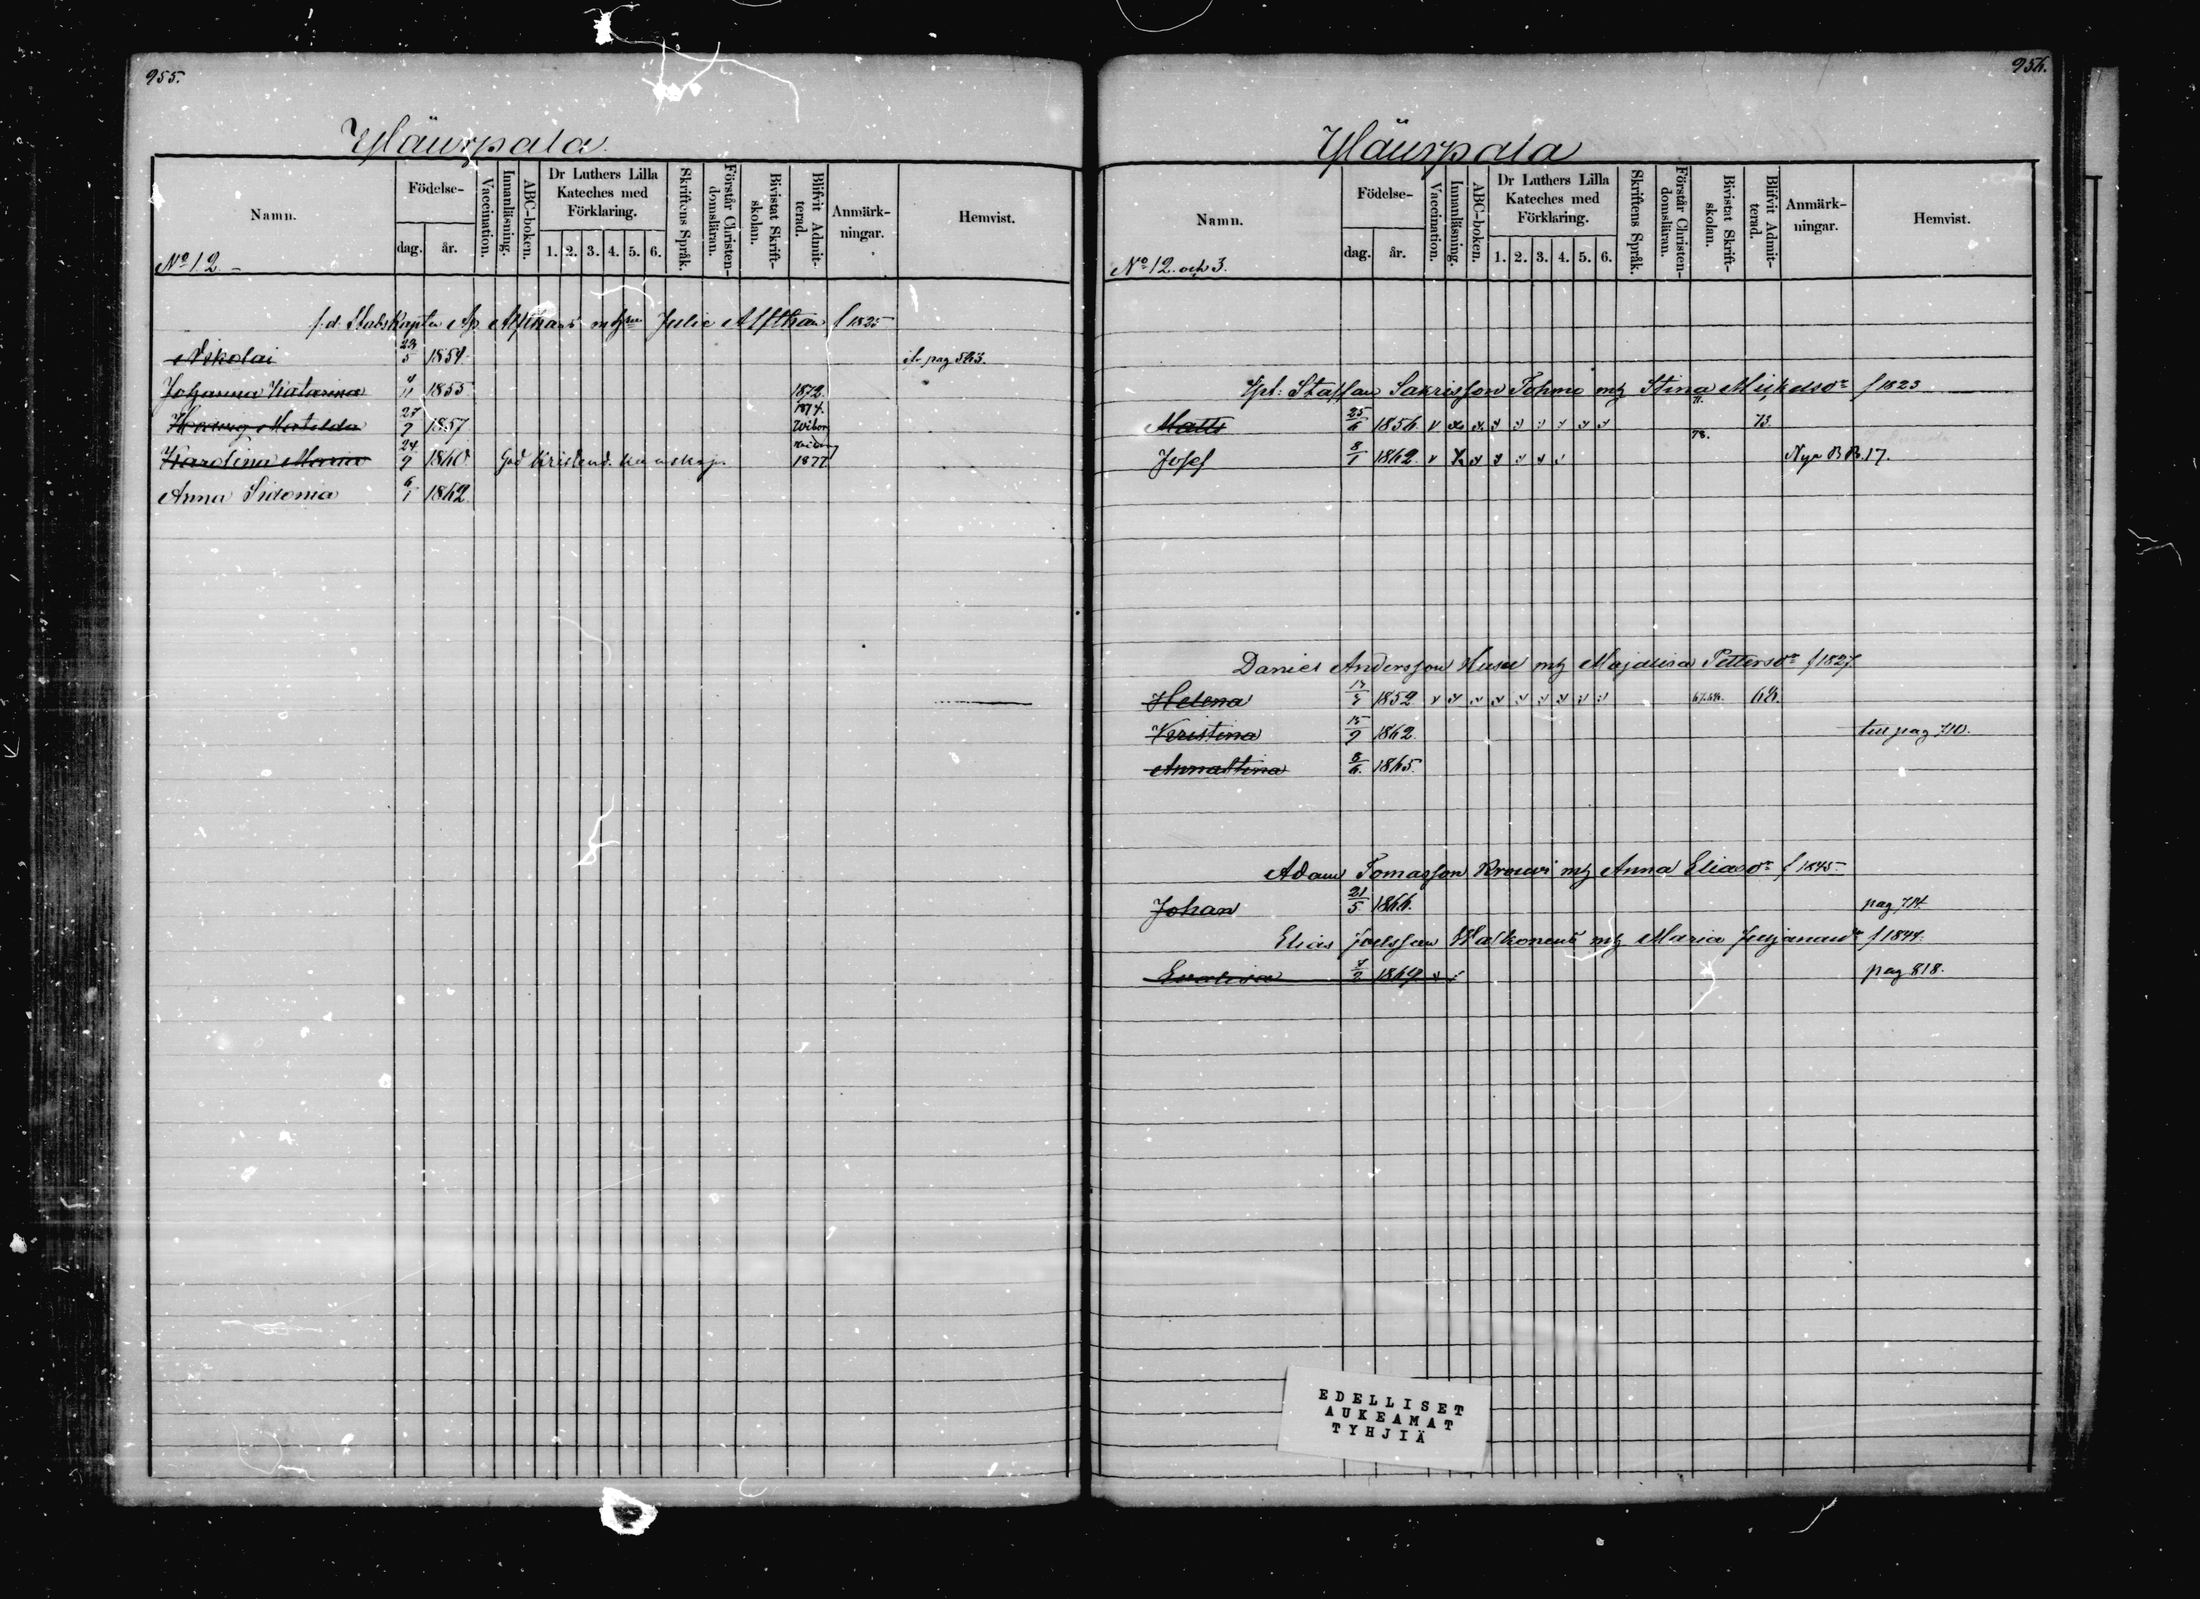 955.
Yläurpala
Namn. Födelse- dag. år. Vaccination. Innanläsning. ABC-boken. Dr Luthers Lilla Kateches med Förklaring. 1. 2. 3. 4. 5. 6. Skriftens Språk. Förstår Christen-domsläran. Bivistat Skrift-skolan. Blifvit Admit-terad. Anmärk-ningar. Hemvist.
No 1. 2.
f.d. Stabskapten Ap. Alfthans m hu Julie Alfthan f 1825
Nikolai 23/5 1854. pag 543.
Johanna Katarina 4/11 1855 1872.
Matilda 27/7 1857 1874. Wiborg
Karolina Maria 24/9 1860 God Kristend. kunskap. 1877
Anna Sidonia 6/1 1862
956.
Yläurpala
Namn. Födelse- dag. år. Vaccination. Innanläsning. ABC-boken. Dr Luthers Lilla Kateches med Förklaring. 1. 2. 3. 4. 5. 6. Skriftens Språk. Förstår Christen-domsläran. Bivistat Skrift-skolan. Blifvit Admit-terad. Anmärk-ningar. Hemvist.
No 1 2. och 3.
Staffan Sakrisson Tohmo mh Stina Mickelsdr f 1823
Matts 25/6 1856. 73.
Josef 8/1 1862. 78. Nya B B. 17.
Daniel Andersson Husu mh Majalisa Pettersdr f 1827
Helena 1852 68.
Kristina 15/9 1862. till pag 710.
Annastina 8/6. 1865.
Adam Tomasson mh Anna Eliasdr f 1845
Johan 21/5 1866. pag 714.
Elias Joelsson mh Maria f 1844.
Evalisa 4/2 1869 pag 818.
EDELLISET
AUKEAMAT
TYHJIÄ